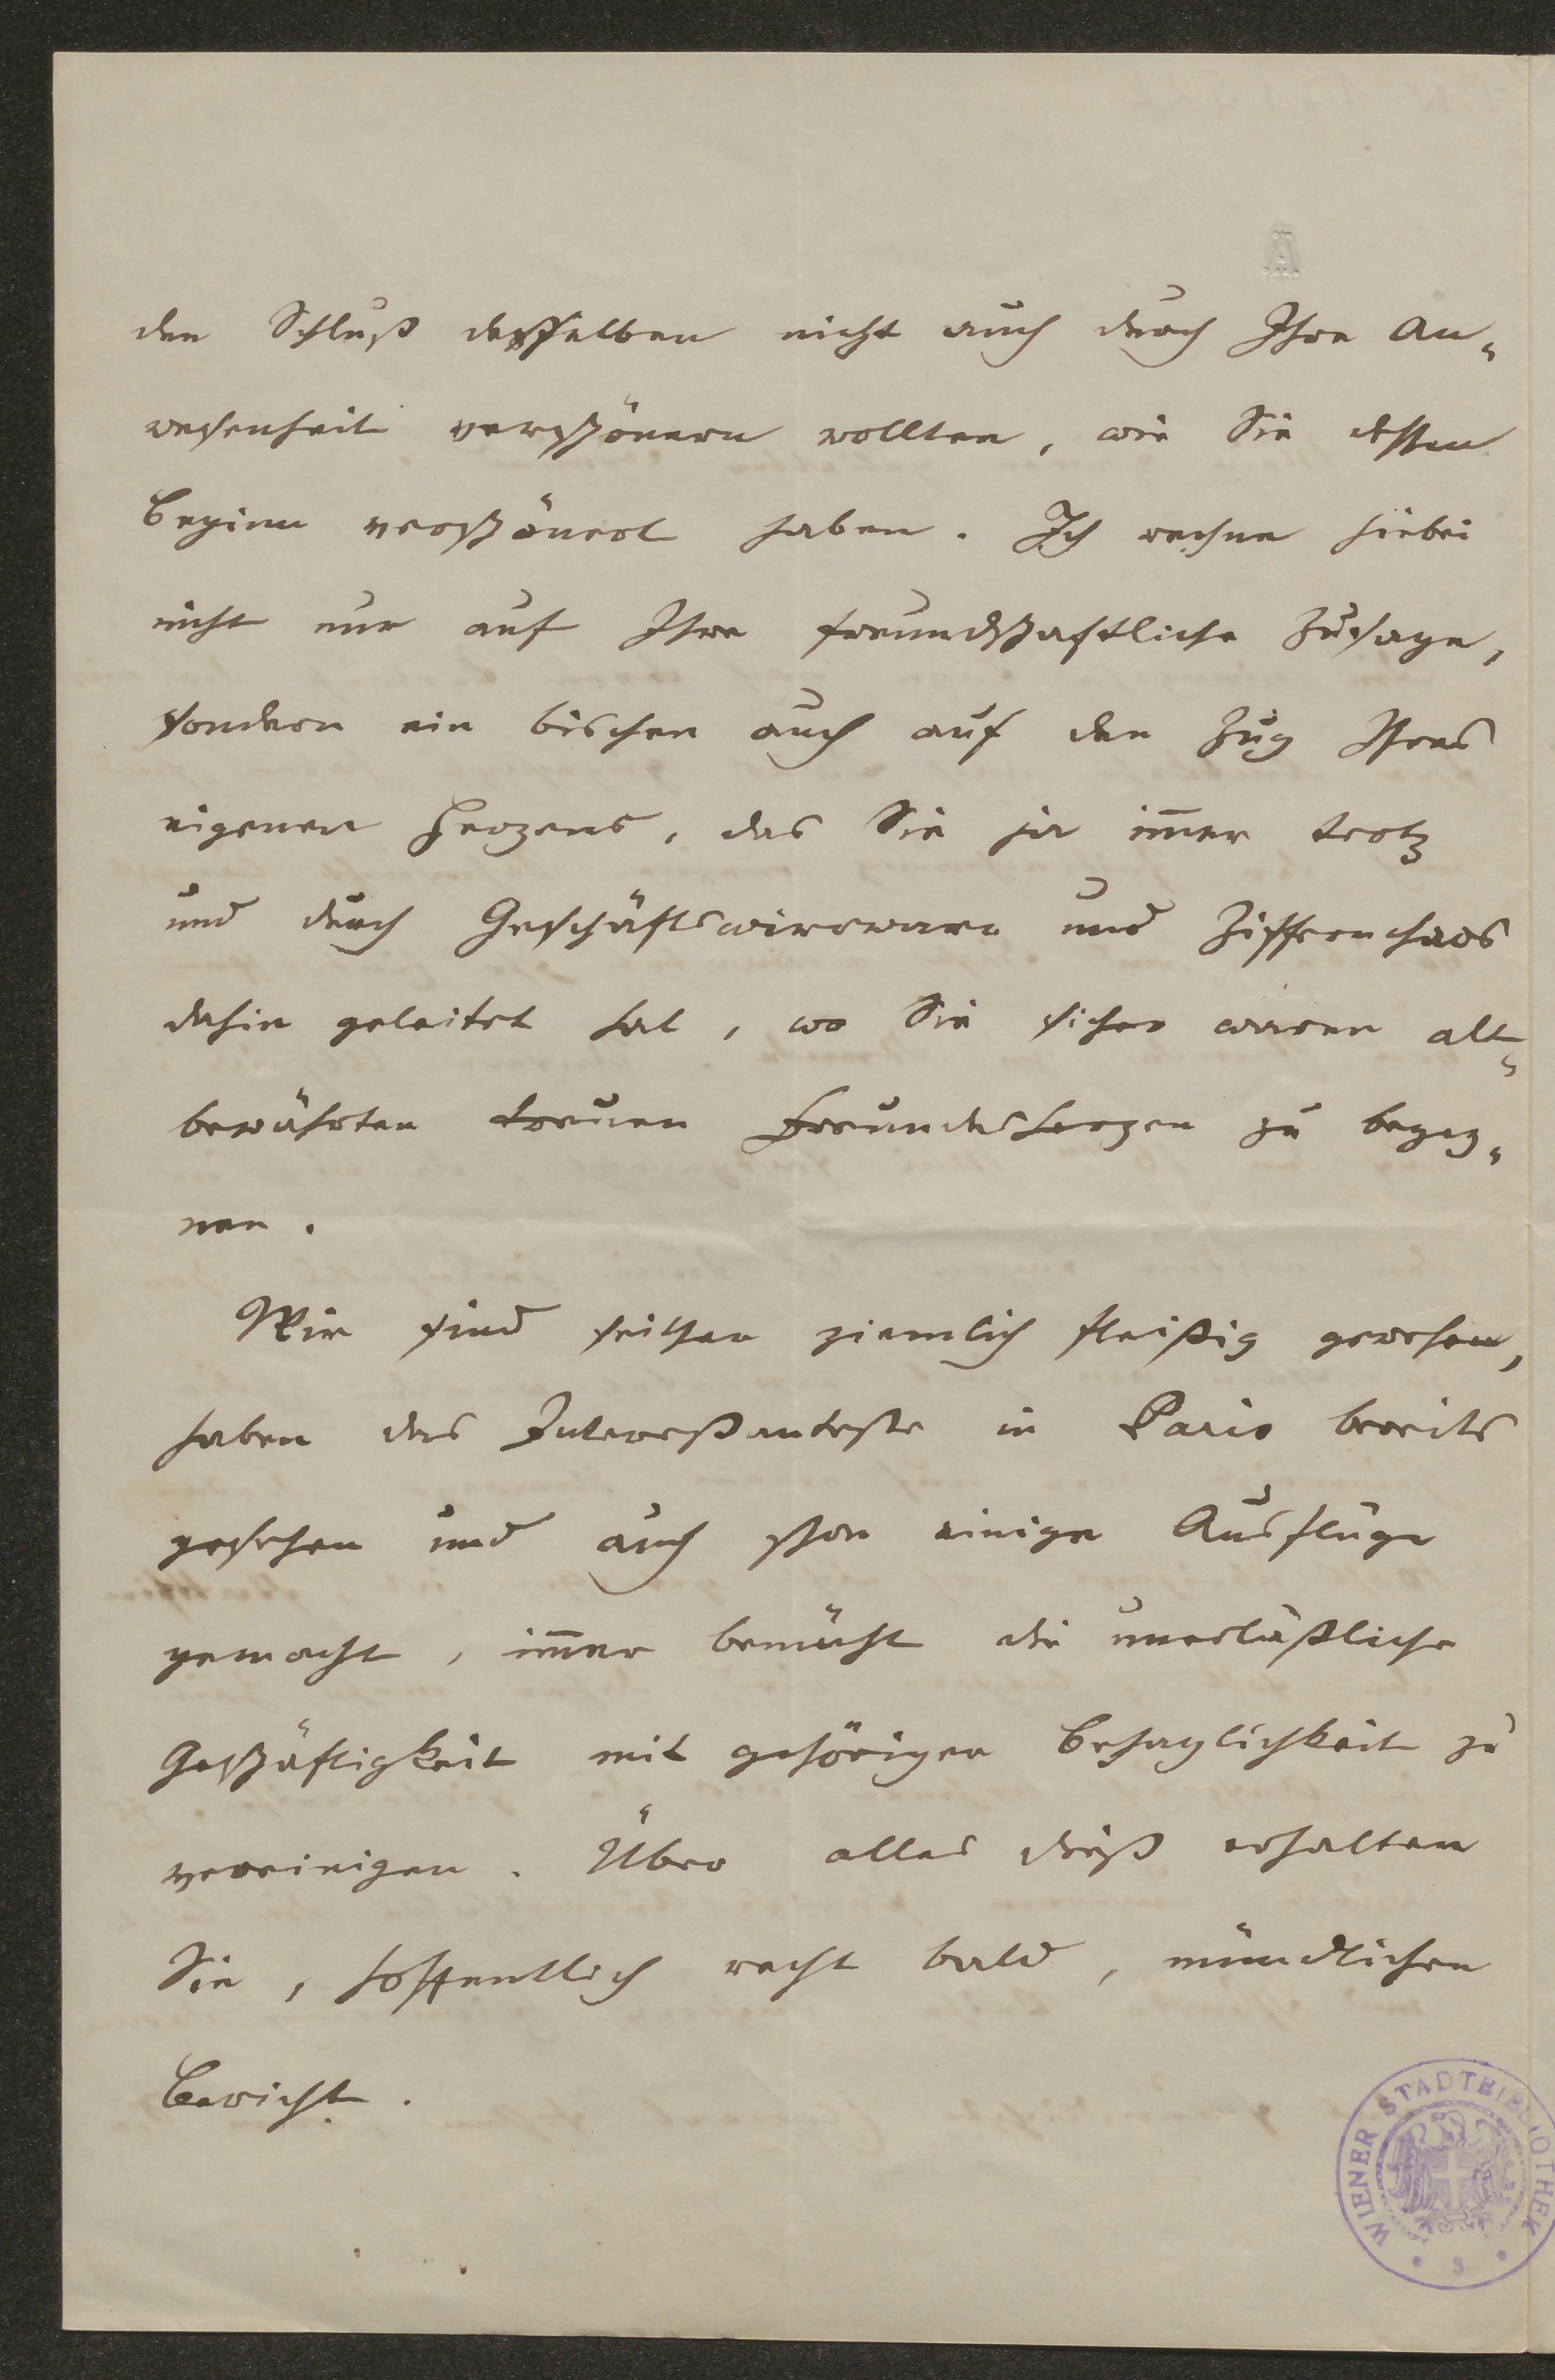 A
den Schluß desselben nicht auch durch Ihre An-
wesenheit verschönern wollten, wie Sie dessen
Beginn verschönert haben. Ich rechne hiebei
nicht nur auf Ihre freundschaftliche Zusage,
sondern ein bischen auch auf den Zug Ihres
eigenen Herzens, das Sie ja im̅er trotz
und durch Geschäftswirrwarr und Ziffernchaos
dahin geleitet hat, wo Sie sicher waren alt-
bewährten treuen Freundesherzen zu begeg-
nen.
Wir sind seither ziemlich fleißig gewesen,
haben das Interessanteste in Paris bereits
gesehen und auch schon einige Ausflüge
gemacht, im̅er bemüht die unerläßliche
Geschäftigkeit mit gehöriger Behaglichkeit zu
vereinigen. Über alles dieß erhalten
Sie, hoffentlich recht bald, mündlichen
Bericht.
WIENER STADTBIBLIOTHEK
* 3 *